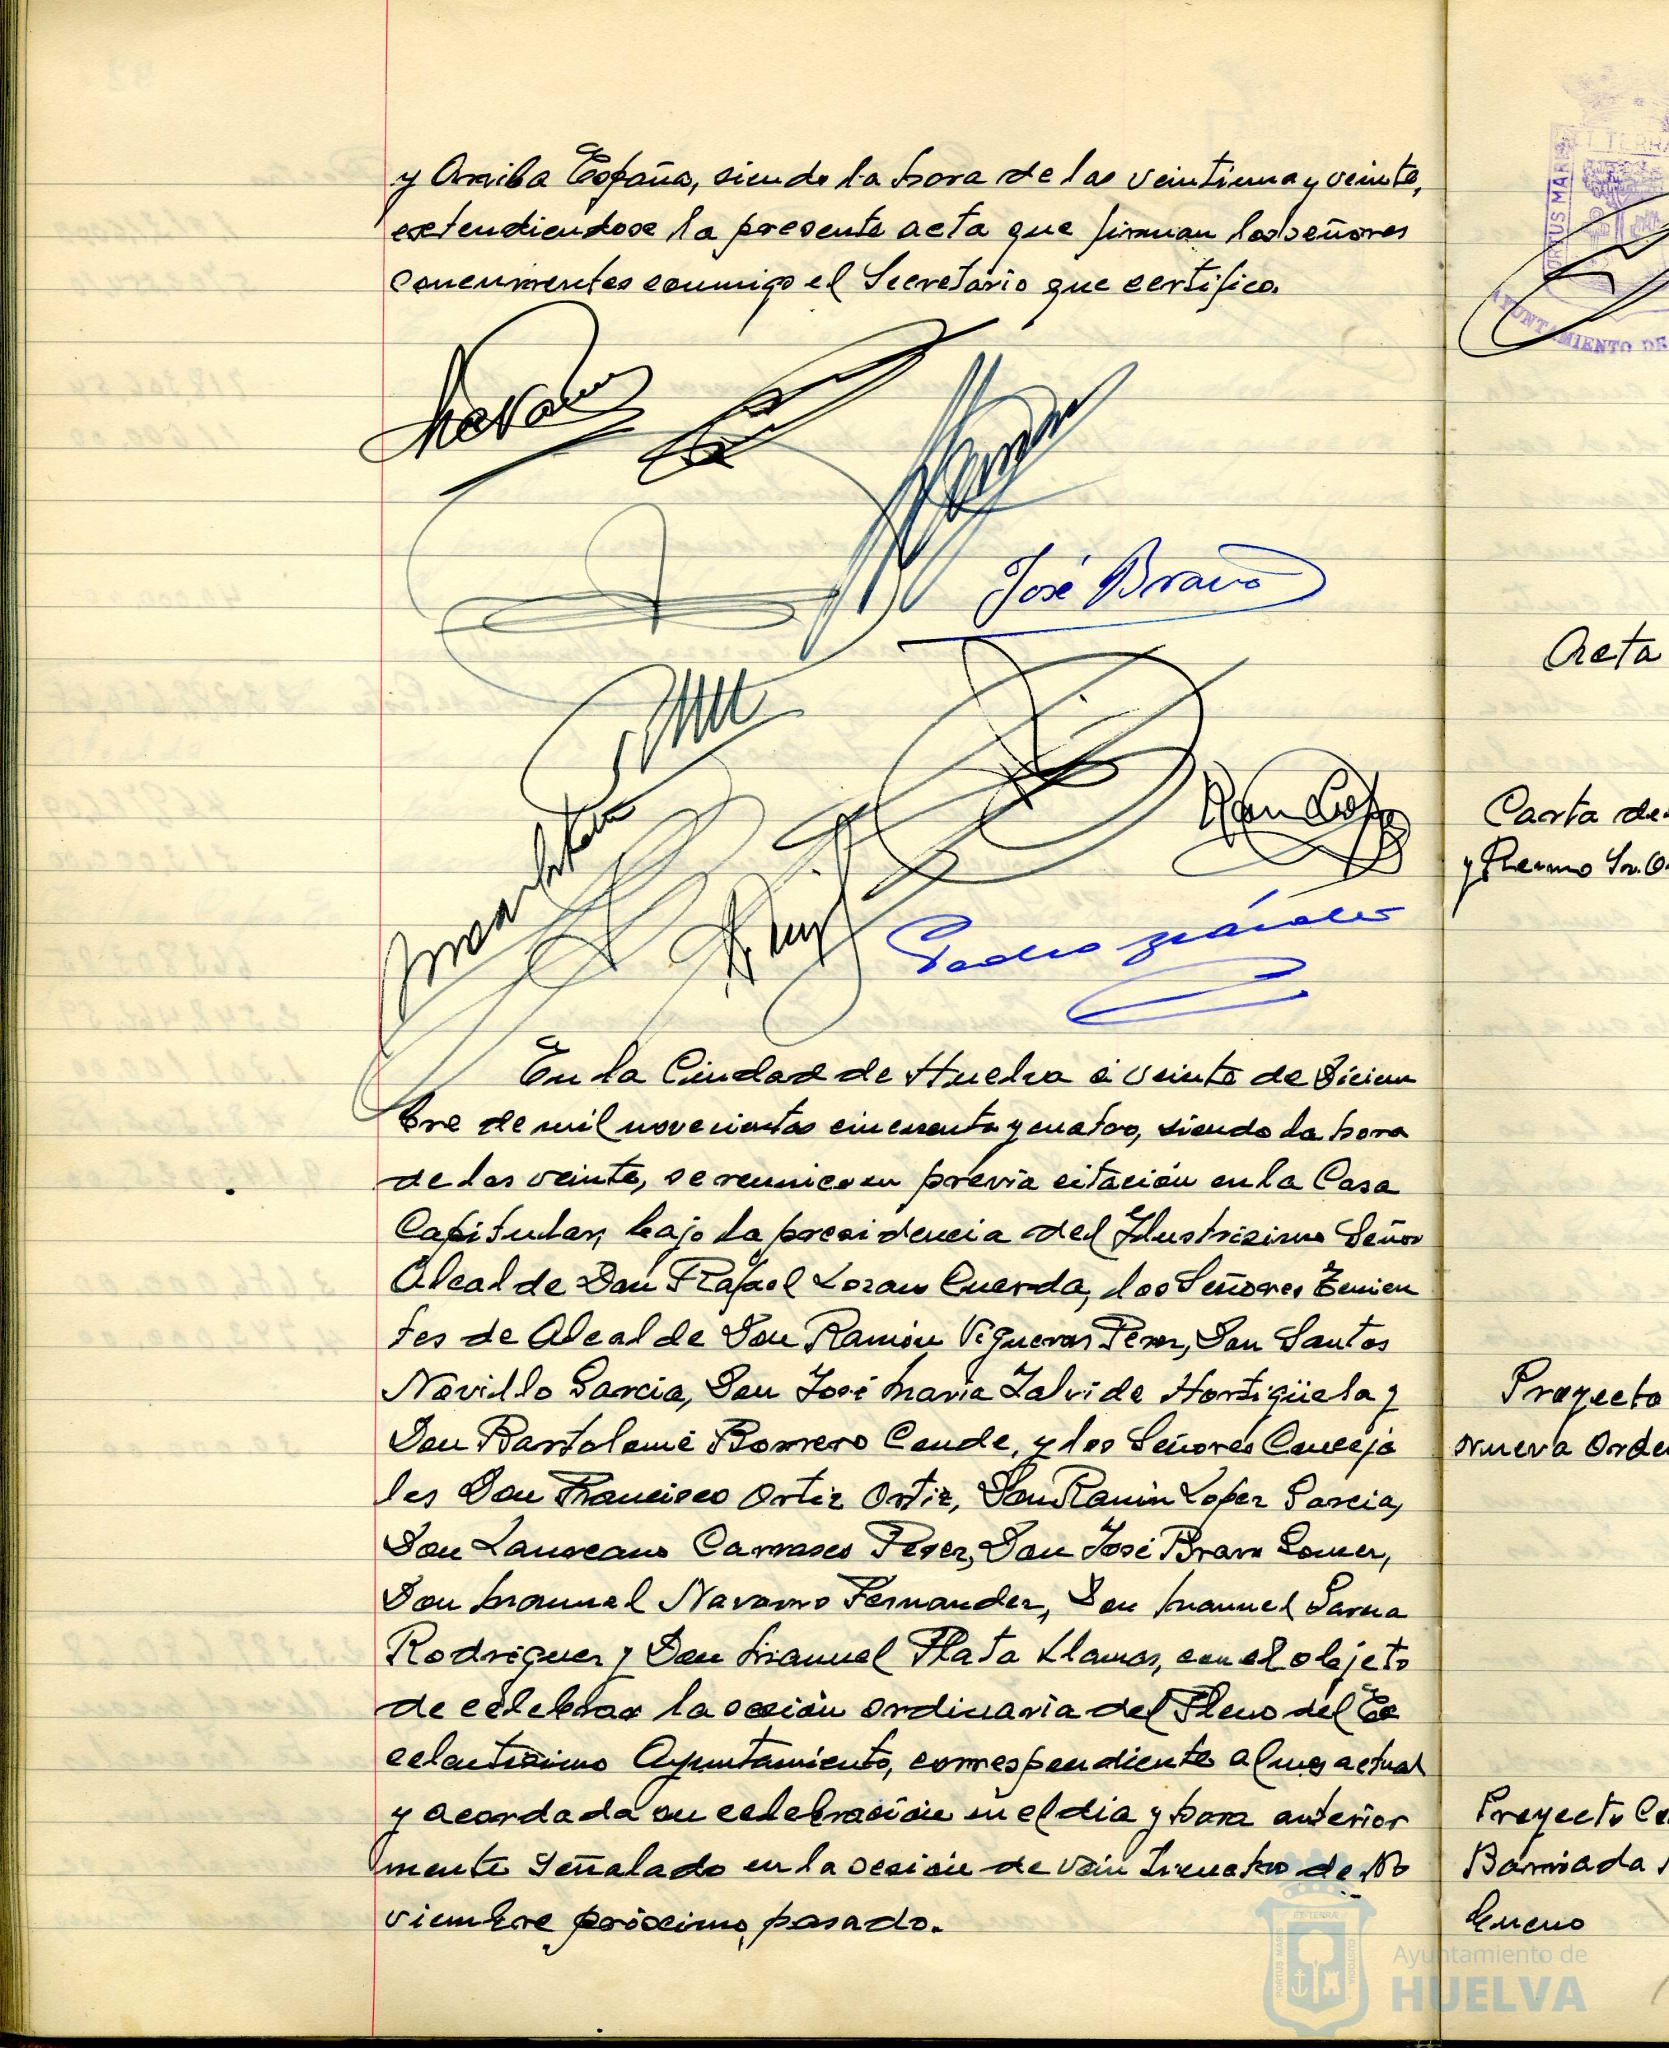 y Arriba España, siendo la hora de las veintiuna y veinte,
extendiendose la presente acta que firman los señores
concurrentes conmigo el Secretario que certifico.
José Bravo
En la Ciudad de Huelva a veinte de Diciem
bre de mil novecientos cincuenta y cuatro, siendo la hora
de las veinte, se reunieron previa citación en la Casa
Capitular, bajo la presidencia del Ilustrisimo Señor
Alcalde Don Rafael Lozano Cuerda, los Señores Tenien
tes de Alcalde Don Ramón Vigueras Perez, Don Santos
Novillo Garcia, Don José Maria Zalvide Hortigüela y
Don Bartolomé Borrero Conde, y los Señores Conceja
les Don Francisco Ortiz Ortiz, Don Ramón Lopez Garcia,
Don Laureano Carrasco Perez, Don José Bravo Gomez,
Don Manuel Navarro Fernandez, Don Manuel
Rodriguez y Don Manuel Plata Llamas, con el objeto
de celebrar la sesión ordinaria del Pleno del Ex
celentisimo Ayuntamiento, correspondiente al mes actual
y acordada su celebración en el dia y hora anterior
mente señalado en la sesión de veinticuatro de No
viembre próximo pasado.
PORTUS MARIS
ET TERRA
AYUNTAMIENTO DE
Acta
Carta de
y Sr. O
Proyecto
Nueva Orde
Proyecto Co
Barriada
Bueno
PORTUS MARIS
ET TERRÆ
CUSTODIA
Ayuntamiento de
HUELVA